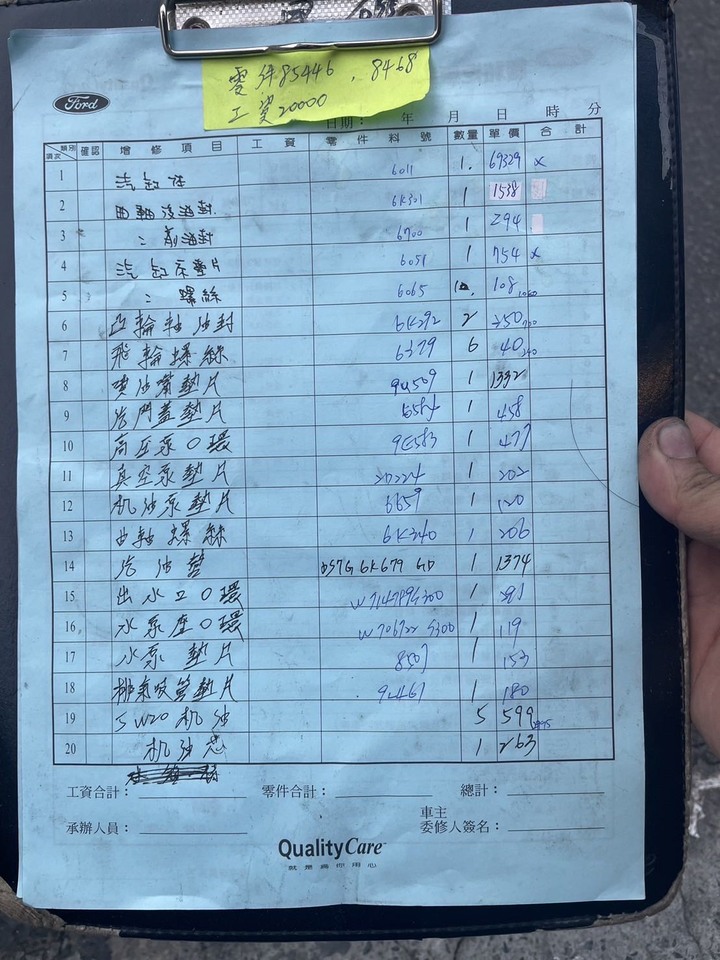 零件85446，8468
工資20000
Ford
日期： 年 月 日 時 分
類別 項次 確認 增修項目 工資 零件料號 數量 單價 合計
1 汽缸床 6011 1. 69329 x
2 曲軸後油封 6K301 1 1538
3 〃 前油封 6700 1 294
4 汽缸床墊片 6051 1 754 x
5 〃 螺絲 6065 10. 108
6 凸輪軸油封 6K292 2 350
7 飛輪螺絲 6379 6 40 240
8 噴油嘴墊片 9U509 1 1332
9 汽門蓋墊片 6584 1 458
10 高压泵O環 9E583 1 477
11 真空泵墊片 2D224 1 202
12 机油泵墊片 6659 1 120
13 曲軸螺絲 6K340 1 206
14 汽油管 DS7G 6K679 GD 1 1374
15 出水口O環 1
16 水泵座O環 W706722 S300 1 119
17 水泵墊片 8507 1 153
18 排氣岐管墊片 1 180
19 5W20机油 5 599
20 机油芯 1 263
工資合計： 零件合計： 總計：
承辦人員： 車主
委修人簽名：
QualityCare
就是為你用心